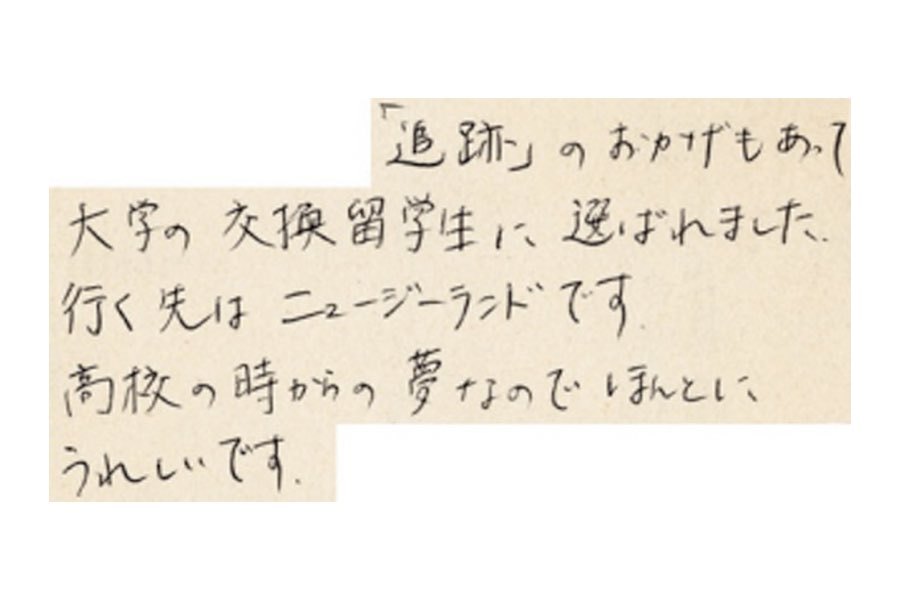 「追跡」のおかげもあって
大学の交換留学生に選ばれました.
行く先はニュージーランドです.
高校の時からの夢なのでほんとに
うれしいです.